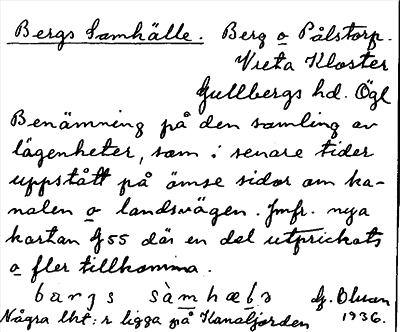 Bergs Samhälle. Berg o Pålstorp.
Vreta Kloster
Gullbergs hd. Ögl
Benämning på den samling av
lägenheter, som i senare tider
uppstått på ömse sidor om ka-
nalen o landsvägen. Jmfr. nya
kartan G55 där en del utprickats
o fler tillkomma.
bargs sàmhæbə G. Olsson
1936.
Några lht:r ligga på Kanaljorden